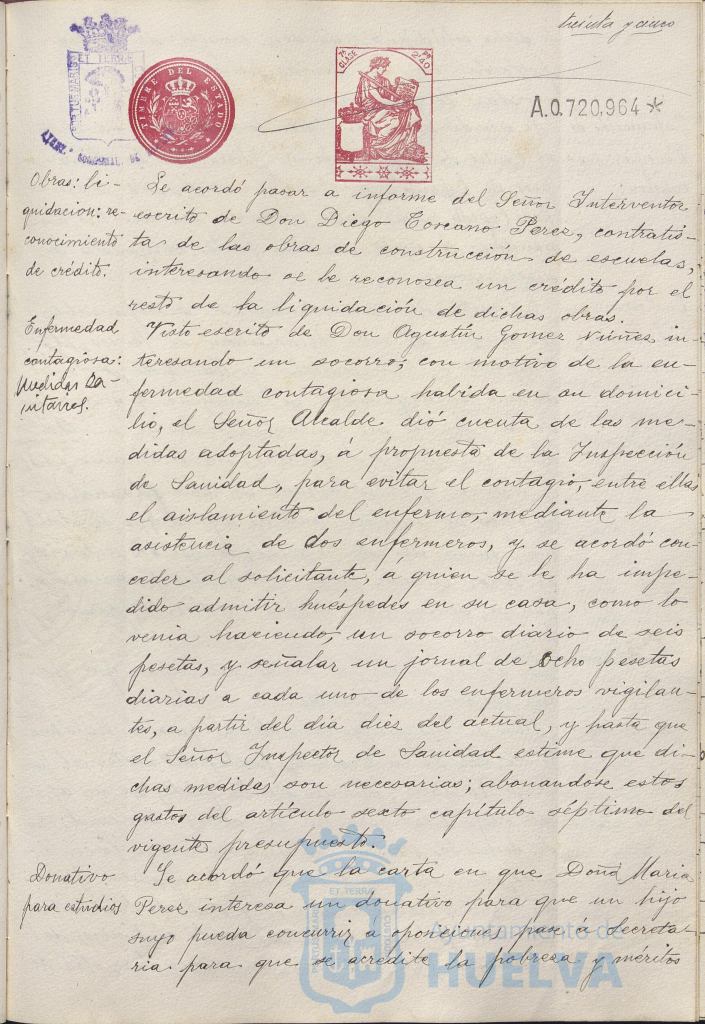 treinta y cinco
PORTUS MARIS ET TERRAE
TIMBRE DEL ESTADO
7ª CLASE
Pts 2'40
A.0.720,964*
Obras: li-
quidacion: re-
conocimiento
de crédito.
Se acordó pasar a informe del Señor Interventor
escrito de Don Diego Toscano Perez, contratis-
ta de las obras de construcción de escuelas,
interesando se le reconosca un crédito por el
resto de la liquidación de dichas obras.
Enfermedad
contagiosa:
Medidas sa-
nitarias.
Visto escrito de Don Agustín Gomez Núñez, in-
teresando un socorro, con motivo de la en-
fermedad contagiosa habida en su domici-
lio, el Señor Alcalde dió cuenta de las me-
didas adoptadas, á propuesta de la Inspección
de Sanidad, para evitar el contagio, entre ellas
el aislamiento del enfermo, mediante la
asistencia de dos enfermeros, y se acordó con-
ceder al solicitante, á quien se le ha impe-
dido admitir huéspedes en su casa, como lo
venia haciendo, un socorro diario de seis
pesetas, y señalar un jornal de ocho pesetas
diarias a cada uno de los enfermeros vigilan-
tes, a partir del día diez del actual, y hasta que
el Señor Inspector de Sanidad estime que di-
chas medidas son necesarias; abonandose estos
gastos del artículo sexto capítulo séptimo del
vigente presupuesto.
Donativo
para estudios
Se acordó que la carta en que Doña Maria
Perez interesa un donativo para que un hijo
suyo pueda concurrir á oposiciones, pase á Secreta-
ria para que se acredite la pobreza y méritos
Ayuntamiento de
HUELVA